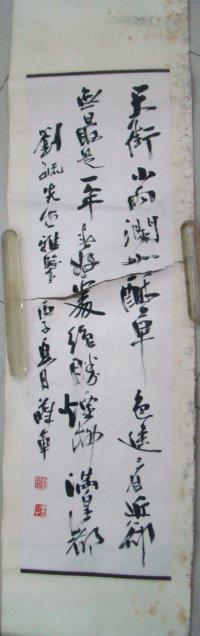 天街小雨潤如酥草色遙看近卻
無最是一年春好處絕勝煙柳滿皇都
劉毓先生雅鑒丙子夏月